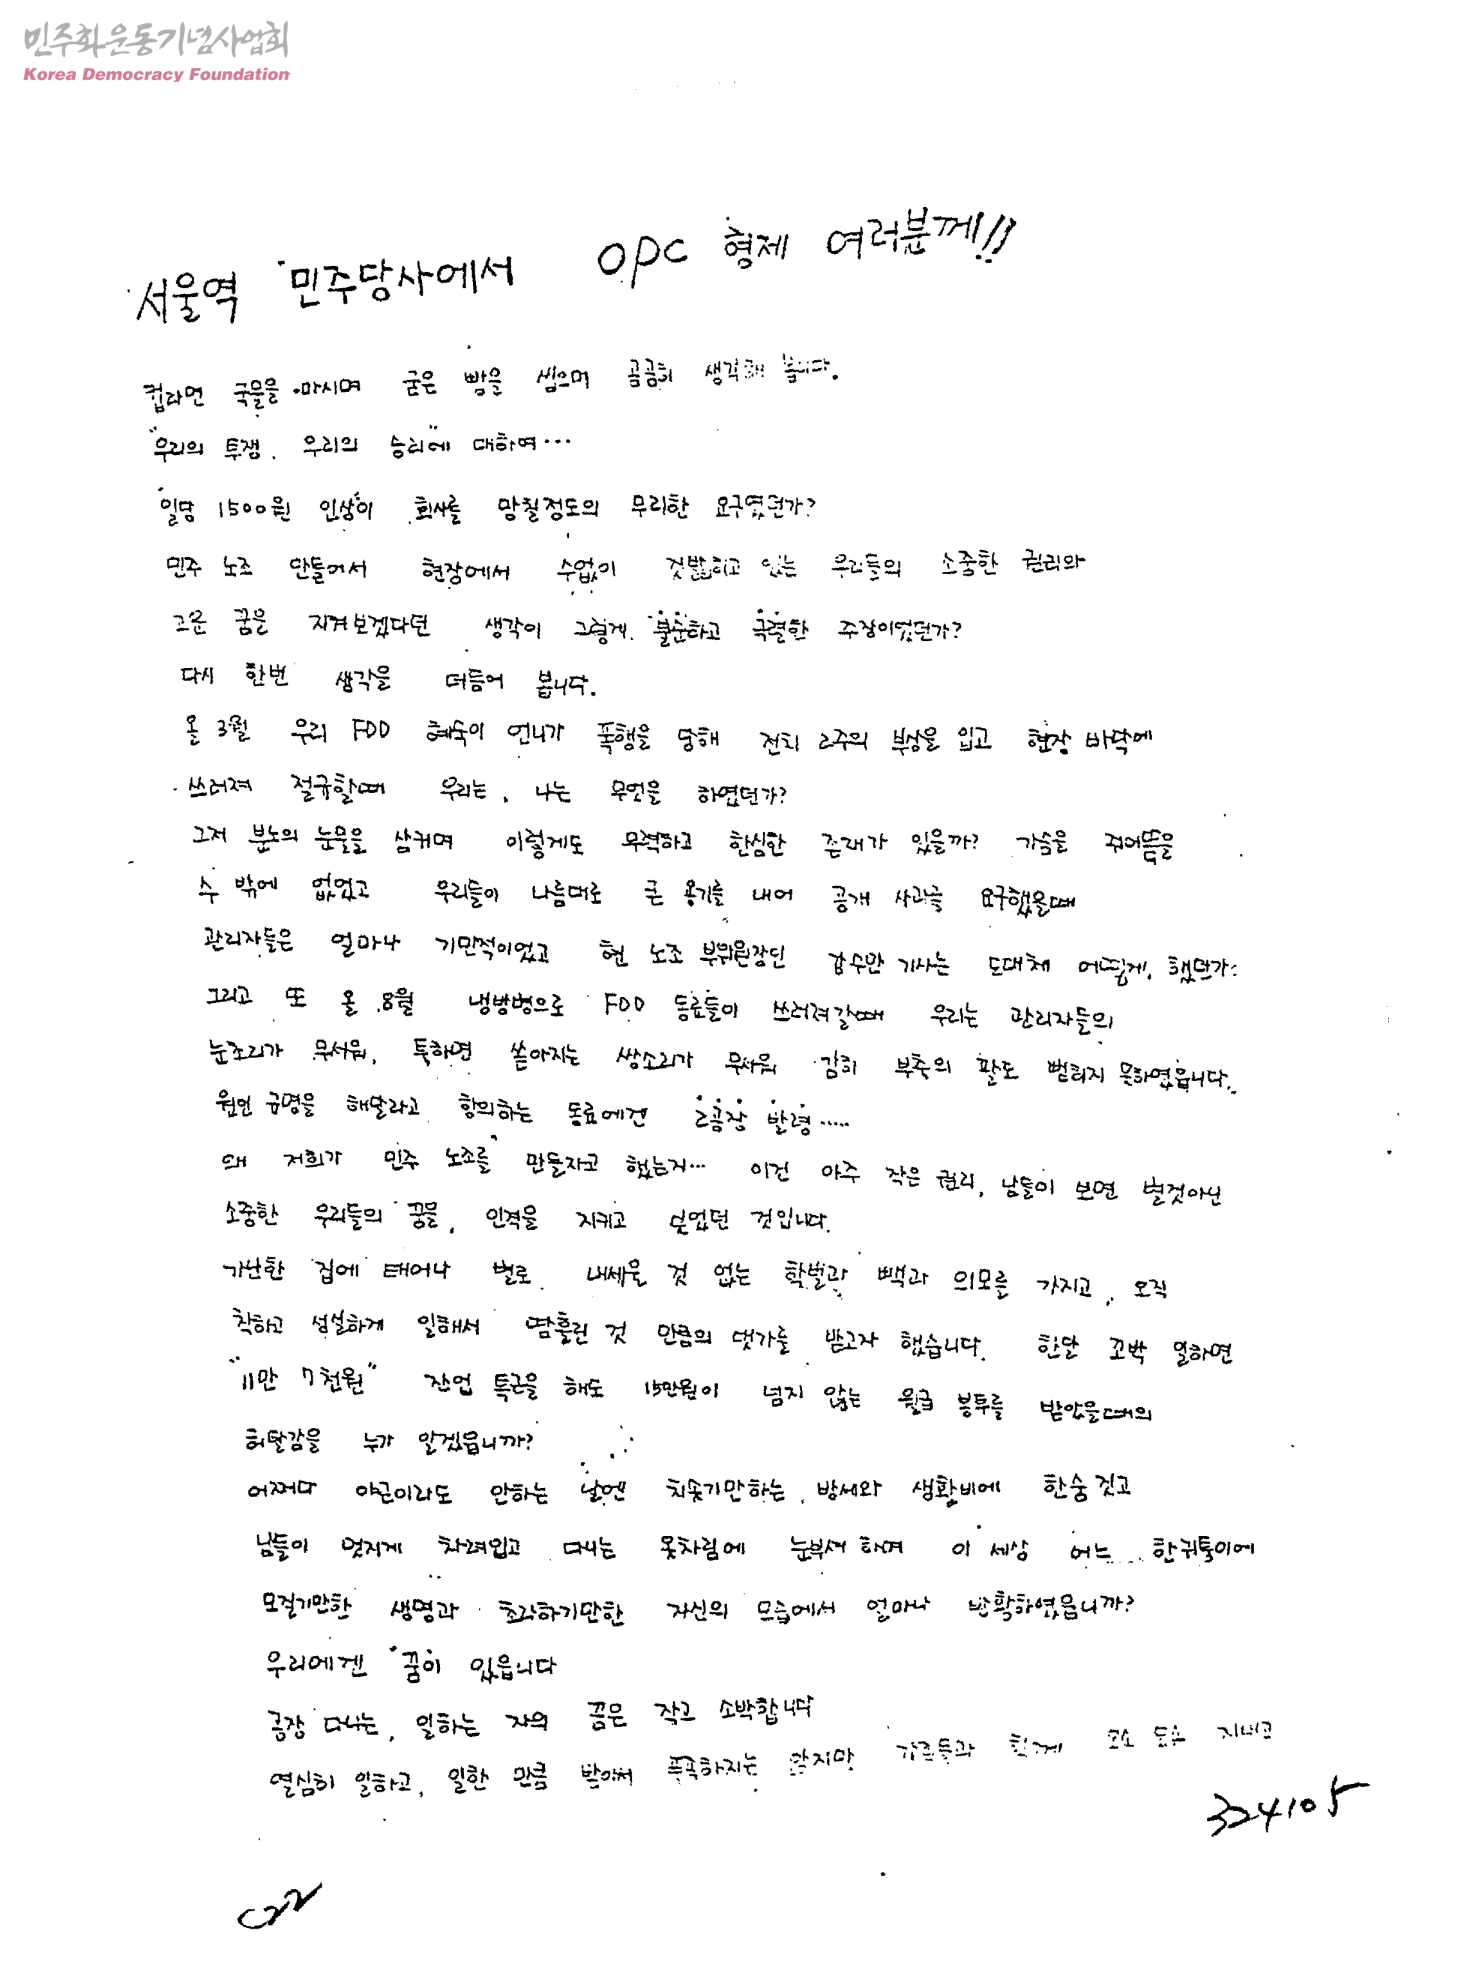 민주화운동기념사업회
Korea Democracy Foundation
서울역 민주당사에서 OPC 형제 여러분께!!
컵라면 국물을 마시며 굳은 빵을 씹으며 곰곰히 생각해 봅니다.
"우리의 투쟁. 우리의 승리"에 대하여...
일당 1500원 인상이 회사를 망칠정도의 무리한 요구였던가?
민주 노조 만들어서 현장에서 수없이 짓밟히고 있는 우리들의 소중한 권리와
고운 꿈을 지켜보겠다던 생각이 그렇게 불순하고 극렬한 주장이었던가?
다시 한번 생각을 더듬어 봅니다.
올 3월 우리 FDD 혜숙이 언니가 폭행을 당해 전치 2주의 부상을 입고 현장 바닥에
쓰러져 절규할때 우리는, 나는 무엇을 하였던가?
그저 분노의 눈물을 삼키며 이렇게도 무력하고 한심한 존재가 있을까? 가슴을 쥐어뜯을
수 밖에 없었고 우리들이 나름대로 큰 용기를 내어 공개 사과를 요구했을때
관리자들은 얼마나 기만적이었고 현 노조 부위원장인 감수만 기사는 도대체 어떻게 했던가?
그리고 또 올 8월 냉방병으로 FDD 동료들이 쓰러져갈때 우리는 관리자들의
눈초리가 무서워, 툭하면 쏟아지는 쌍소리가 무서워 감히 부축의 팔도 뻗히지 못하였읍니다.
원인 규명을 해달라고 항의하는 동료에겐 2공장 발령.....
왜 저희가 민주 노조를 만들자고 했는지... 이건 아주 작은 권리, 남들이 보면 별것아닌
소중한 우리들의 꿈을, 인격을 지키고 싶었던 것입니다.
가난한 집에 태어나 별로 내세울 것 없는 학벌과 빽과 외모를 가지고, 오직
착하고 성실하게 일해서 땀흘린 것 만큼의 댓가를 받고자 했습니다. 한달 꼬박 일하면
"11만 7천원" 잔업 특근을 해도 15만원이 넘지 않는 월급 봉투를 받았을때의
허탈감을 누가 알겠읍니까?
어쩌다 야근이라도 안하는 날엔 치솟기만하는, 방세와 생활비에 한숨 짓고
남들이 멋지게 차려입고 다니는 옷차림에 눈부셔 하며 이 세상 어느 한귀퉁이에
모질기만한 생명과 초라하기만한 자신의 모습에서 얼마나 방황하였읍니까?
우리에겐 꿈이 있읍니다
공장 다니는, 일하는 자의 꿈은 작고 소박합니다
열심히 일하고, 일한 만큼 받아서 풍족하지는 않지만 가족들과 함께 오손 도손 지내고
324105